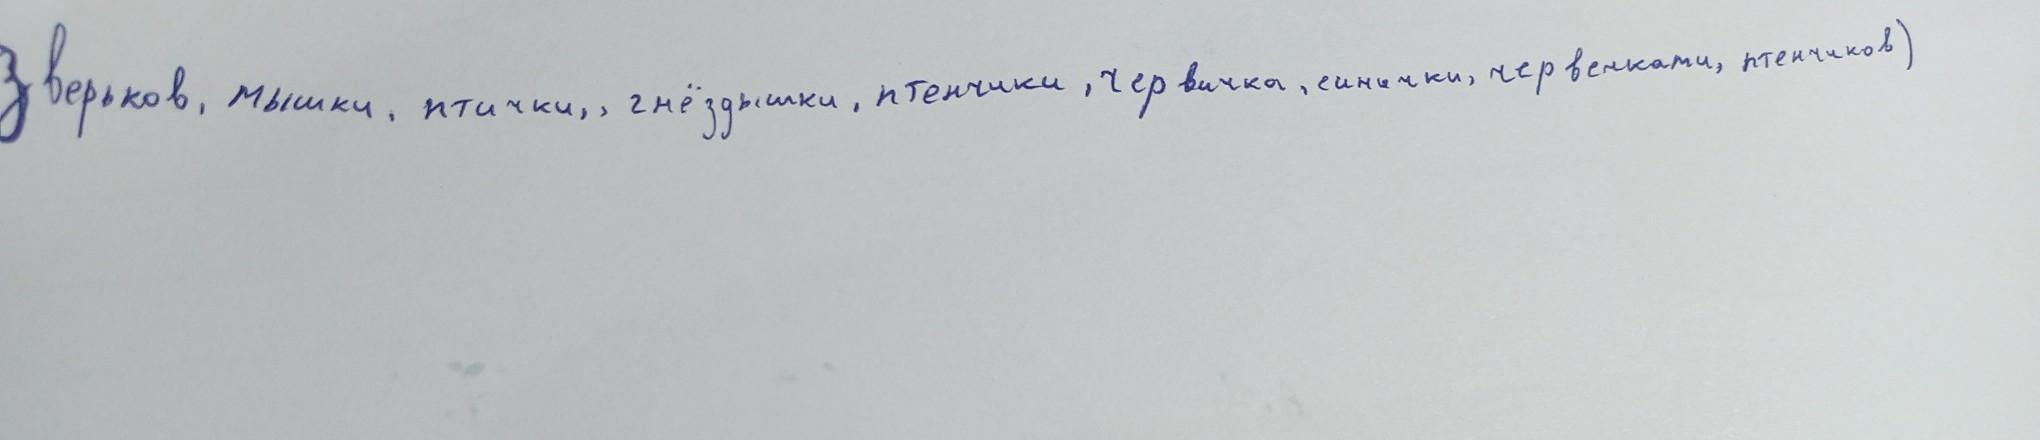 Зверьков, мышки, птички,, гнёздышки, птенчики, червичка, синички, червечками, птенчиков)